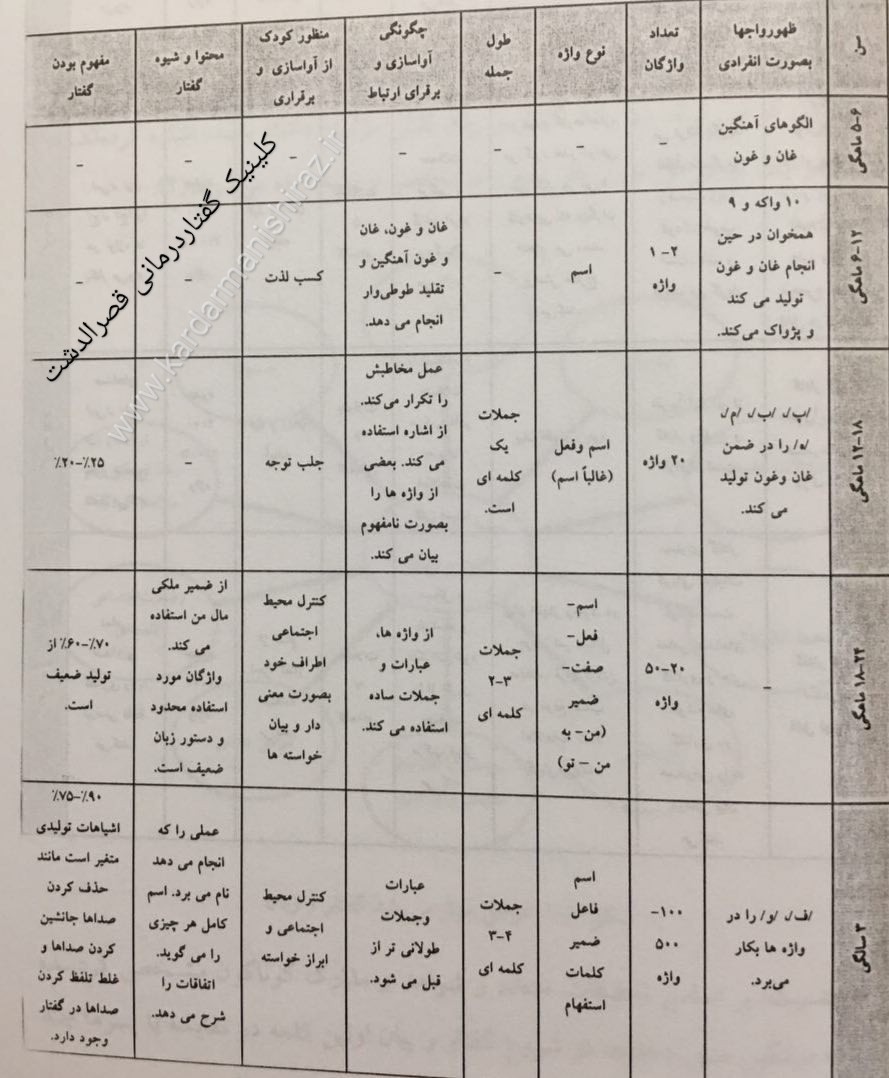 سن
ظهورواجها
بصورت انفرادی
تعداد
واژگان
نوع واژه
طول
جمله
چگونگی
آواسازی و
برقرای ارتباط
منظور کودک
از آواسازی و
برقراری
محتوا و شیوه
گفتار
مفهوم بودن
گفتار
۵-۶ ماهگی
الگوهای آهنگین
غان و غون
–
–
–
–
–
–
–
۶-۱۲ ماهگی
۱۰ واکه و ۹
همخوان در حین
انجام غان و غون
تولید می کند
و پژواک می‌کند.
۱-۲
واژه
اسم
–
غان و غون، غان
و غون آهنگین و
تقلید طوطی‌وار
انجام می دهد.
کسب لذت
–
–
۱۲-۱۸ ماهگی
/پ/، /ب/، /م/،
/ه/ را در ضمن
غان وغون تولید
می کند.
۲۰ واژه
اسم وفعل
(غالباً اسم)
جملات
یک
کلمه ای
است.
عمل مخاطبش
را تکرار می‌کند.
از اشاره استفاده
می کند. بعضی
از واژه ها را
بصورت نامفهوم
بیان می کند.
جلب توجه
–
۲۰٪-۲۵٪
۱۸-۲۴ ماهگی
–
۲۰-۵۰
واژه
اسم-
فعل-
صفت-
ضمیر
(من- به
من – تو)
جملات
۲-۳
کلمه ای
از واژه ها،
عبارات و
جملات ساده
استفاده می کند.
کنترل محیط
اجتماعی
اطراف خود
بصورت معنی
دار و بیان
خواسته ها
از ضمیر ملکی
مال من استفاده
می کند.
واژگان مورد
استفاده محدود
و دستور زبان
ضعیف است.
۶۰٪-۷۰٪ از
تولید ضعیف
است.
۳ سالگی
/ف/، /و/ را در
واژه ها بکار
می‌برد.
۱۰۰-
۵۰۰
واژه
اسم
فاعل
ضمیر
کلمات
استفهام
جملات
۳-۴
کلمه ای
عبارات
وجملات
طولانی تر از
قبل می شود.
کنترل محیط
اجتماعی و
ابراز خواسته
عملی را که
انجام می دهد
نام می برد. اسم
کامل هر چیزی
را می گوید.
اتفاقات را
شرح می دهد.
۷۵٪-۹۰٪
اشیاهات تولیدی
متغیر است مانند
حذف کردن
صداها جانشین
کردن صداها و
غلط تلفظ کردن
صداها در گفتار
وجود دارد.
کلینیک گفتاردرمانی قصرالدشت
www.kardarmanishiraz.ir